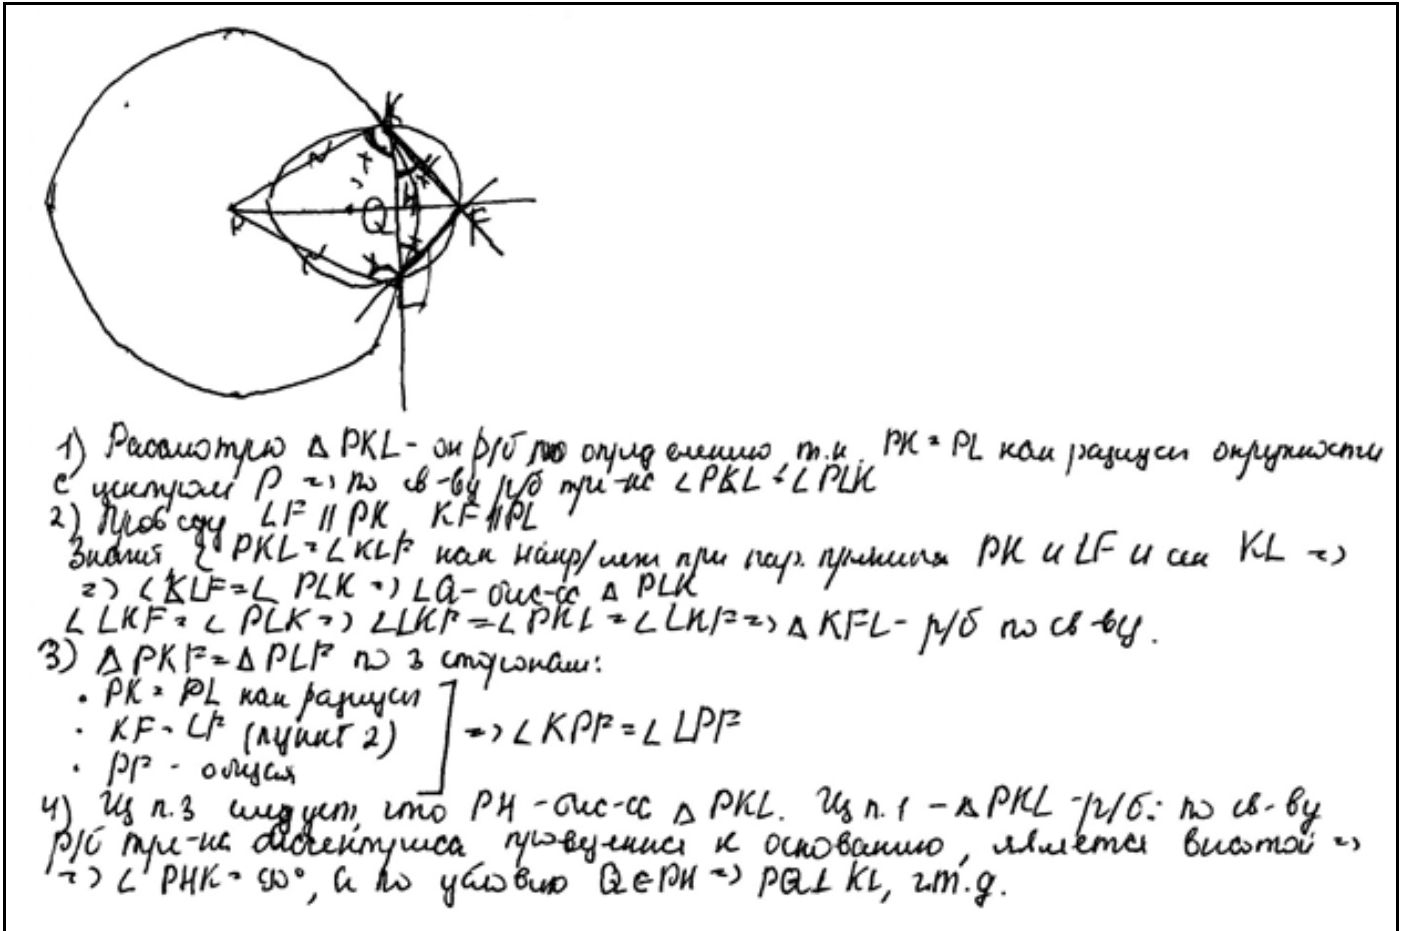 K
P
Q
H
F
1) Рассмотрю △ PKL - он р/б по определению, т.к. PK = PL как радиусы окружности
с центром P => по св-ву р/б тре-ка ∠PKL = ∠PLK
2) Проведу LF || PK, KF || PL
Значит, ∠ PKL = ∠KLF как накр/леж при пар. прямых PK и LF и сек KL =>
=> ∠KLF = ∠ PLK => LQ - бис-са △ PLK
∠ LKF = ∠ PLK => ∠LKF = ∠PKL = ∠LKF => △ KFL - р/б по св-ву.
3) △ PKF = △ PLF по 3 сторонам:
· PK = PL как радиусы
· KF = LF (пункт 2) => ∠ KPF = ∠ LPF
· PF - общая
4) Из п.3 следует, что PH - бис-са △ PKL. Из п.1 - △ PKL - р/б: по св-ву
р/б тре-ка биссектриса проведенная к основанию, является высотой =>
=> ∠ PHK = 90°, а по условию Q ∈ PH => PQ ⊥ KL, ч.т.д.